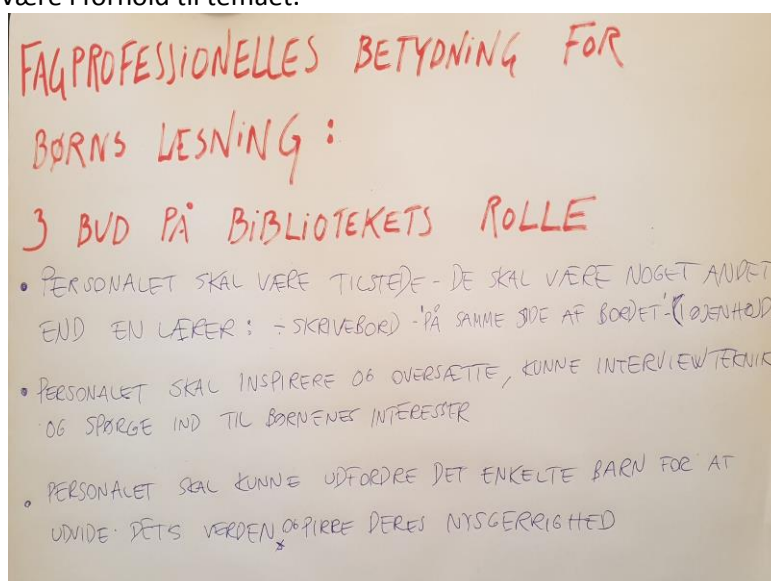 være i forhold til temaet.
FAGPROFESSIONELLES BETYDNING FOR
BØRNS LÆSNING :
3 BUD PÅ BIBLIOTEKETS ROLLE
• PERSONALET SKAL VÆRE TILSTEDE - DE SKAL VÆRE NOGET ANDET
END EN LÆRER : ÷ SKRIVEBORD - 'PÅ SAMME SIDE AF BORDET' - (I ØJENHØJD
• PERSONALET SKAL INSPIRERE OG OVERSÆTTE, KUNNE INTERVIEWTEKNIK
OG SPØRGE IND TIL BØRNENES INTERESSER
• PERSONALET SKAL KUNNE UDFORDRE DET ENKELTE BARN FOR AT
UDVIDE DETS VERDEN OG PIRRE DERES NYSGERRIGHED